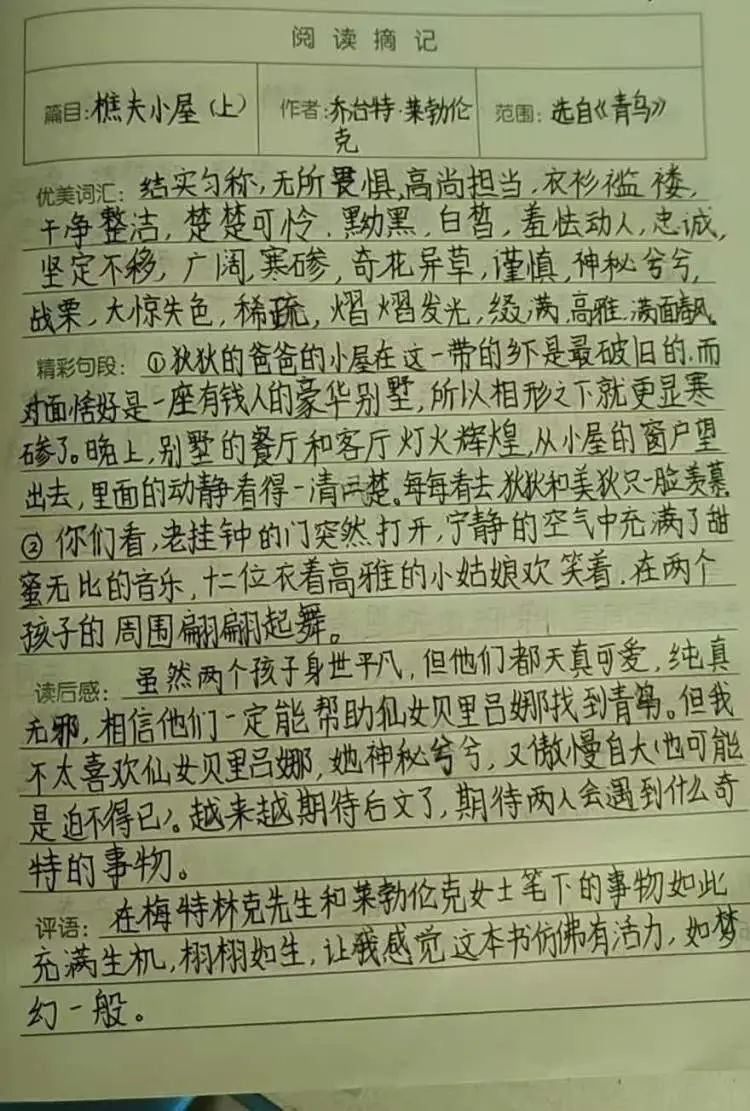 阅读摘记
篇目:樵夫小屋(上) 作者:乔治特·莱勃伦克 范围:选自《青鸟》
优美词汇:结实匀称,无所畏惧,高尚担当,衣衫褴褛,
干净整洁,楚楚可怜,黝黑,白皙,羞怯动人,忠诚,
坚定不移,广阔,寒碜,奇花异草,谨慎,神秘兮兮,
战栗,大惊失色,稀疏,熠熠发光,缀满,高雅,满面春风。
精彩句段:①狄狄的爸爸的小屋在这一带的乡下是最破旧的,而
对面恰好是一座有钱人的豪华别墅,所以相形之下就更显寒
碜了。晚上,别墅的餐厅和客厅灯火辉煌,从小屋的窗户望
出去,里面的动静看得一清二楚。每每看去,狄狄和美狄只一脸羡慕
②你们看,老挂钟的门突然打开,宁静的空气中充满了甜
蜜无比的音乐,十二位衣着高雅的小姑娘欢笑着,在两个
孩子的周围翩翩起舞。
读后感:虽然两个孩子身世平凡,但他们都天真可爱,纯真
无邪,相信他们一定能帮助仙女贝里吕娜找到青鸟。但我
不太喜欢仙女贝里吕娜,她神秘兮兮,又傲慢自大(也可能
是迫不得已)。越来越期待后文了,期待两人会遇到什么奇
特的事物。
评语:在梅特林克先生和莱勃伦克女士笔下的事物如此
充满生机,栩栩如生,让我感觉这本书仿佛有活力,如梦
幻一般。